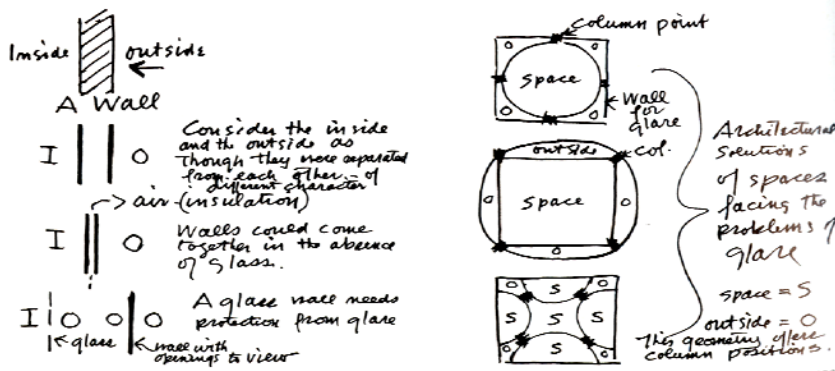 Inside
outside
A Wall
I
O
Consider the inside
and the outside as
though they were separated
from each other - of
different character
air (insulation)
I
O
Walls could come
together in the absence
of glass.
I
O
O
O
A glass wall needs
protection from glare
glass
wall with
openings to view
column point
O
O
space
O
O
Wall
for
glare
outside
col.
O
space
O
O
O
S
O
S
S
S
S
O
O
Architectural
Solutions
of spaces
facing the
problems of
glare
space = S
outside = O
This geometry
column positions.